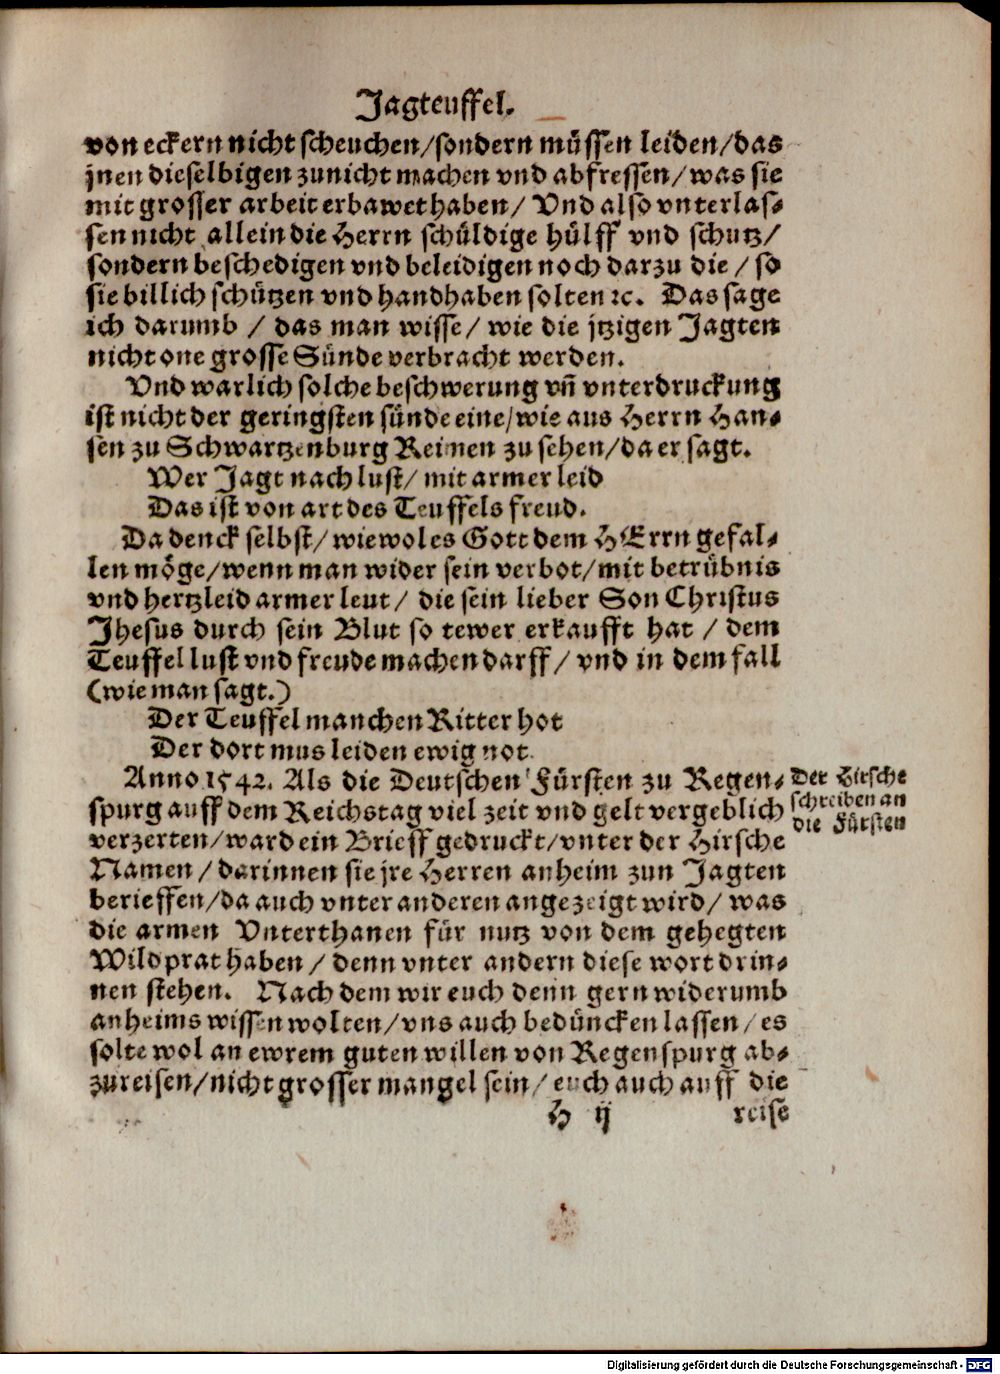 Jagteuffel.
von eckern nicht scheuchen/sondern müssen leiden/das
jnen dieselbigen zunicht machen vnd abfressen/was sie
mit grosser arbeit erbawet haben/ Vnd also vnterlas-
sen nicht allein die Herrn schüldige hülff vnd schutz/
sondern beschedigen vnd beleidigen noch darzu die / so
sie billich schützen vnd handhaben solten ꝛc. Das sage
ich darumb / das man wisse/ wie die jtzigen Jagten
nicht one grosse Sünde verbracht werden.
Vnd warlich solche beschwerung vñ vnterdruckung
ist nicht der geringsten sünde eine/wie aus Herrn Han-
sen zu Schwartzenburg Reimen zu sehen/da er sagt.
Wer Jagt nach lust/ mit armer leid
Das ist von art des Teuffels freud.
Da denck selbst/ wie wol es Gott dem HErrn gefal-
len möge/wenn man wider sein verbot/mit betrübnis
vnd hertzleid armer leut/ die sein lieber Son Christus
Jhesus durch sein Blut so tewer erkaufft hat / dem
Teuffel lust vnd freude machen darff/ vnd in dem fall
(wie man sagt.)
Der Teuffel manchen Ritter hot
Der dort mus leiden ewig not.
Anno 1542. Als die Deutschen Fürsten zu Regen-
spurg auff dem Reichstag viel zeit vnd gelt vergeblich
verzerten/ward ein Brieff gedruckt/vnter der Hirsche
Namen / darinnen sie jre Herren anheim zun Jagten
berieffen/da auch vnter anderen angezeigt wird/ was
die armen Vnterthanen für nutz von dem gehegten
Wildprat haben / denn vnter andern diese wort drin-
nen stehen. Nach dem wir euch denn gern widerumb
anheims wissen wolten/vns auch bedüncken lassen/es
solte wol an ewrem guten willen von Regenspurg ab-
zureisen/nicht grosser mangel sein/euch auch auff die
H ij reise
Der Hirsche
schreiben an
die Fürsten
Digitalisierung gefördert durch die Deutsche Forschungsgemeinschaft - DFG